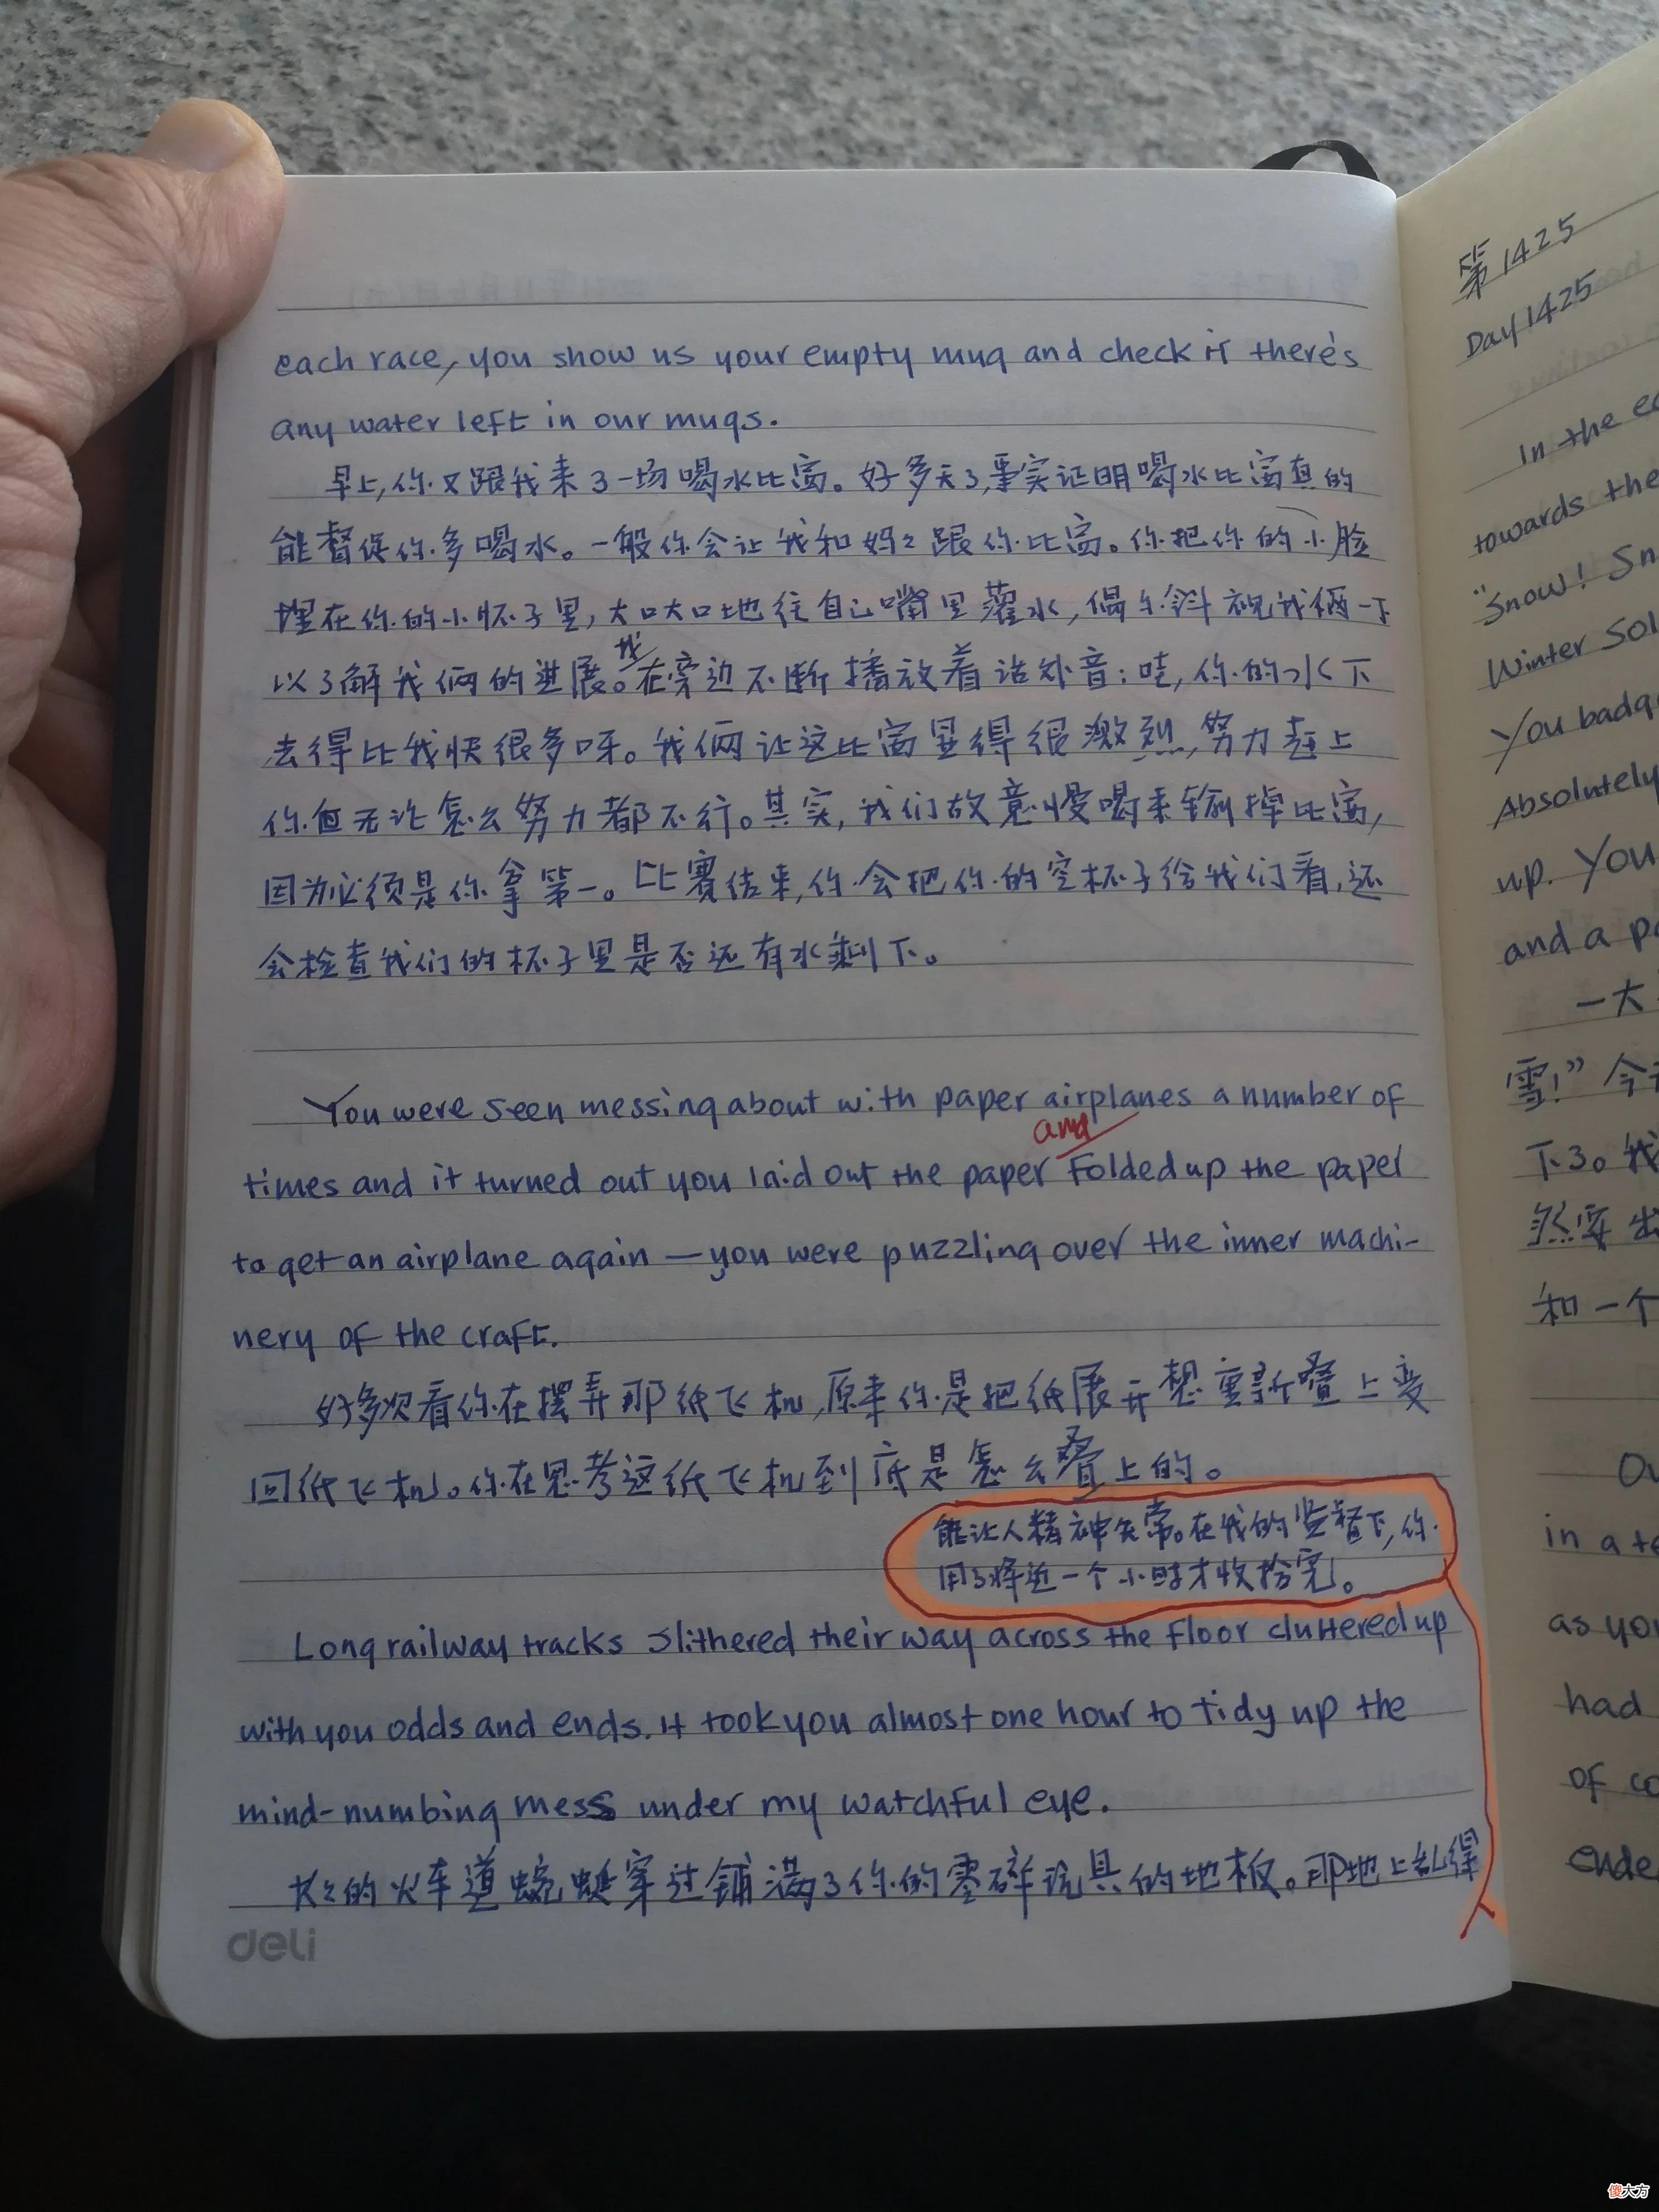 each race, you show us your empty mug and check if there's
any water left in our mugs.
早上,你又跟我来了一场喝水比赛。好多天了,事实证明喝水比赛真的
能督促你多喝水。一般你会让我和妈々跟你比赛。你把你的小脸
埋在你的小杯子里,大口大口地往自己嘴里灌水,偶尔斜视我俩一下
以了解我俩的进展。我在旁边不断播放着话外音:哇,你的水下
去得比我快很多呀。我俩让这比赛显得很激烈,努力赶上
你但无论怎么努力都不行。其实,我们故意慢喝来输掉比赛,
因为必须是你拿第一。比赛结束,你会把你的空杯子给我们看,还
会检查我们的杯子里是否还有水剩下。
You were seen messing about with paper airplanes a number of
and
times and it turned out you laid out the paper folded up the paper
to get an airplane again — you were puzzling over the inner machi-
nery of the craft.
好多次看你在摆弄那纸飞机,原来你是把纸展开想重新叠上变
回纸飞机。你在思考这纸飞机到底是怎么叠上的。
能让人精神失常。在我的监督下,你
用了将近一个小时才收拾完。
Long railway tracks slithered their way across the floor cluttered up
with you odds and ends. It took you almost one hour to tidy up the
mind-numbing mess under my watchful eye.
长々的火车道蜿蜒穿过铺满了你的零碎玩具的地板。那地上乱得
deli
第1425
Day 1425
In the
towards the
"Snow! Sn
Winter Sol
You badg
Absolutely
up. You
and a p
一大
雪!" 今
下了。我
然
和一个
in a te
as you
had
of co
ende
傻大方